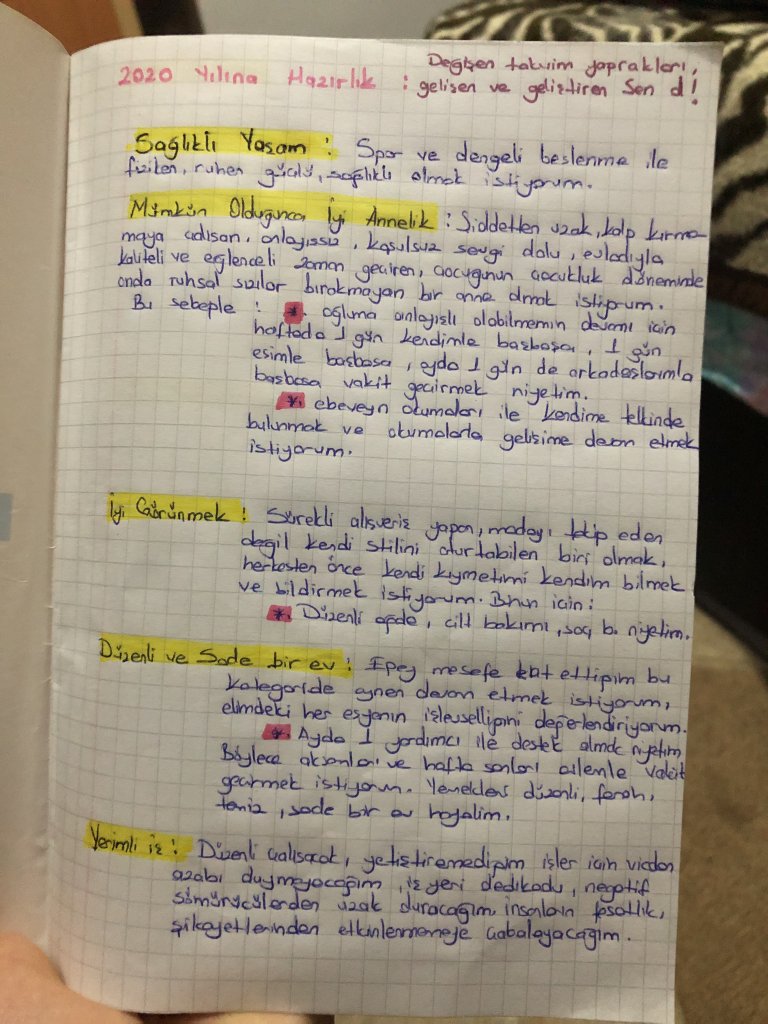 2020 Yılına Hazırlık : Değişen takvim yaprakları,
gelişen ve geliştiren Sen ol!
Sağlıklı Yaşam : Spor ve dengeli beslenme ile
fiziken, ruhen güçlü, sağlıklı olmak istiyorum.
Mümkün Olduğunca İyi Annelik : Şiddetten uzak, kalp kırma-
maya çalışan, anlayışlı, koşulsuz sevgi dolu, evladıyla
kaliteli ve eğlenceli zaman geçiren, çocuğunun çocukluk döneminde
onda ruhsal sızılar bırakmayan bir anne olmak istiyorum.
Bu sebeple : *. oğluma anlayışlı olabilmemin devamı için
haftada 1 gün kendimle başbaşa, 1 gün
eşimle başbaşa, ayda 1 gün de arkadaşlarımla
başbaşa vakit geçirmek niyetim.
*. ebeveyn okumaları ile kendime telkinde
bulunmak ve okumalarla gelişime devam etmek
istiyorum.
İyi Görünmek : Sürekli alışveriş yapan, modayı takip eden
değil kendi stilini oturtabilen biri olmak,
herkesten önce kendi kıymetimi kendim bilmek
ve bildirmek istiyorum. Bunun için :
*. Düzenli ağda, cilt bakımı, saç b. niyetim.
Düzenli ve Sade bir ev : Epey mesafe kat ettiğim bu
kategoride aynen devam etmek istiyorum,
elimdeki her eşyanın işlevselliğini değerlendiriyorum.
*. Ayda 1 yardımcı ile destek almak niyetim
Böylece akşamları ve hafta sonları ailemle vakit
geçirmek istiyorum. Yemekleri düzenli, ferah,
temiz, sade bir ev hayalim.
Verimli iş : Düzenli çalışarak, yetiştiremediğim işler için vicdan
azabı duymayacağım, iş yeri dedikodu, negatif
sömürücülerden uzak duracağım, insanların fesatlık,
şikayetlerinden etkinlenmemeye çabalayacağım.